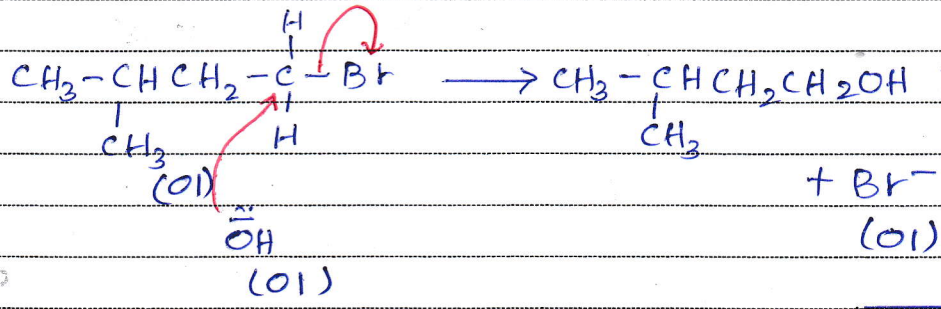 H
CH₃-CHCH₂-C-Br ⟶ CH₃-CHCH₂CH₂OH
CH₃ H CH₃
(01) + Br⁻
⁻
ӦH (01)
(01)